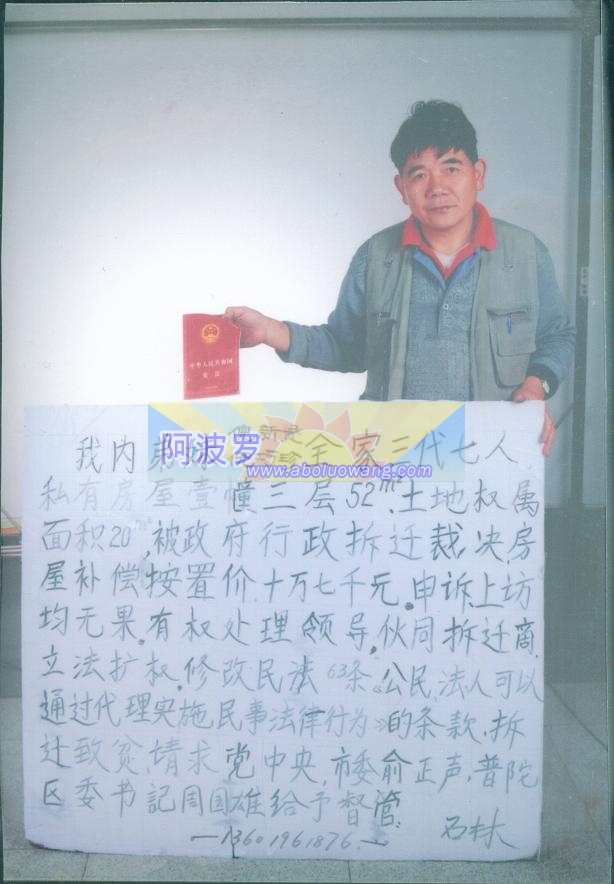 中华人民共和国
宪法
我内弟
新
珍
全家三代七人、
阿波罗
www.aboluowang.com
私有房屋壹幢三层52m²、土地权属
面积20m²,被政府行政拆迁裁决,房
屋补偿按置价、十万七千元。申诉、上坊
均无果。有权处理领导,伙同拆迁商、
立法扩权。修改民法63条《公民、法人可以
通过代理实施民事法律行为》的条款,拆
迁致贫、请求党中央,市委俞正声,普陀
区委书記周国雄给予督管.
石林
—13601961876.—